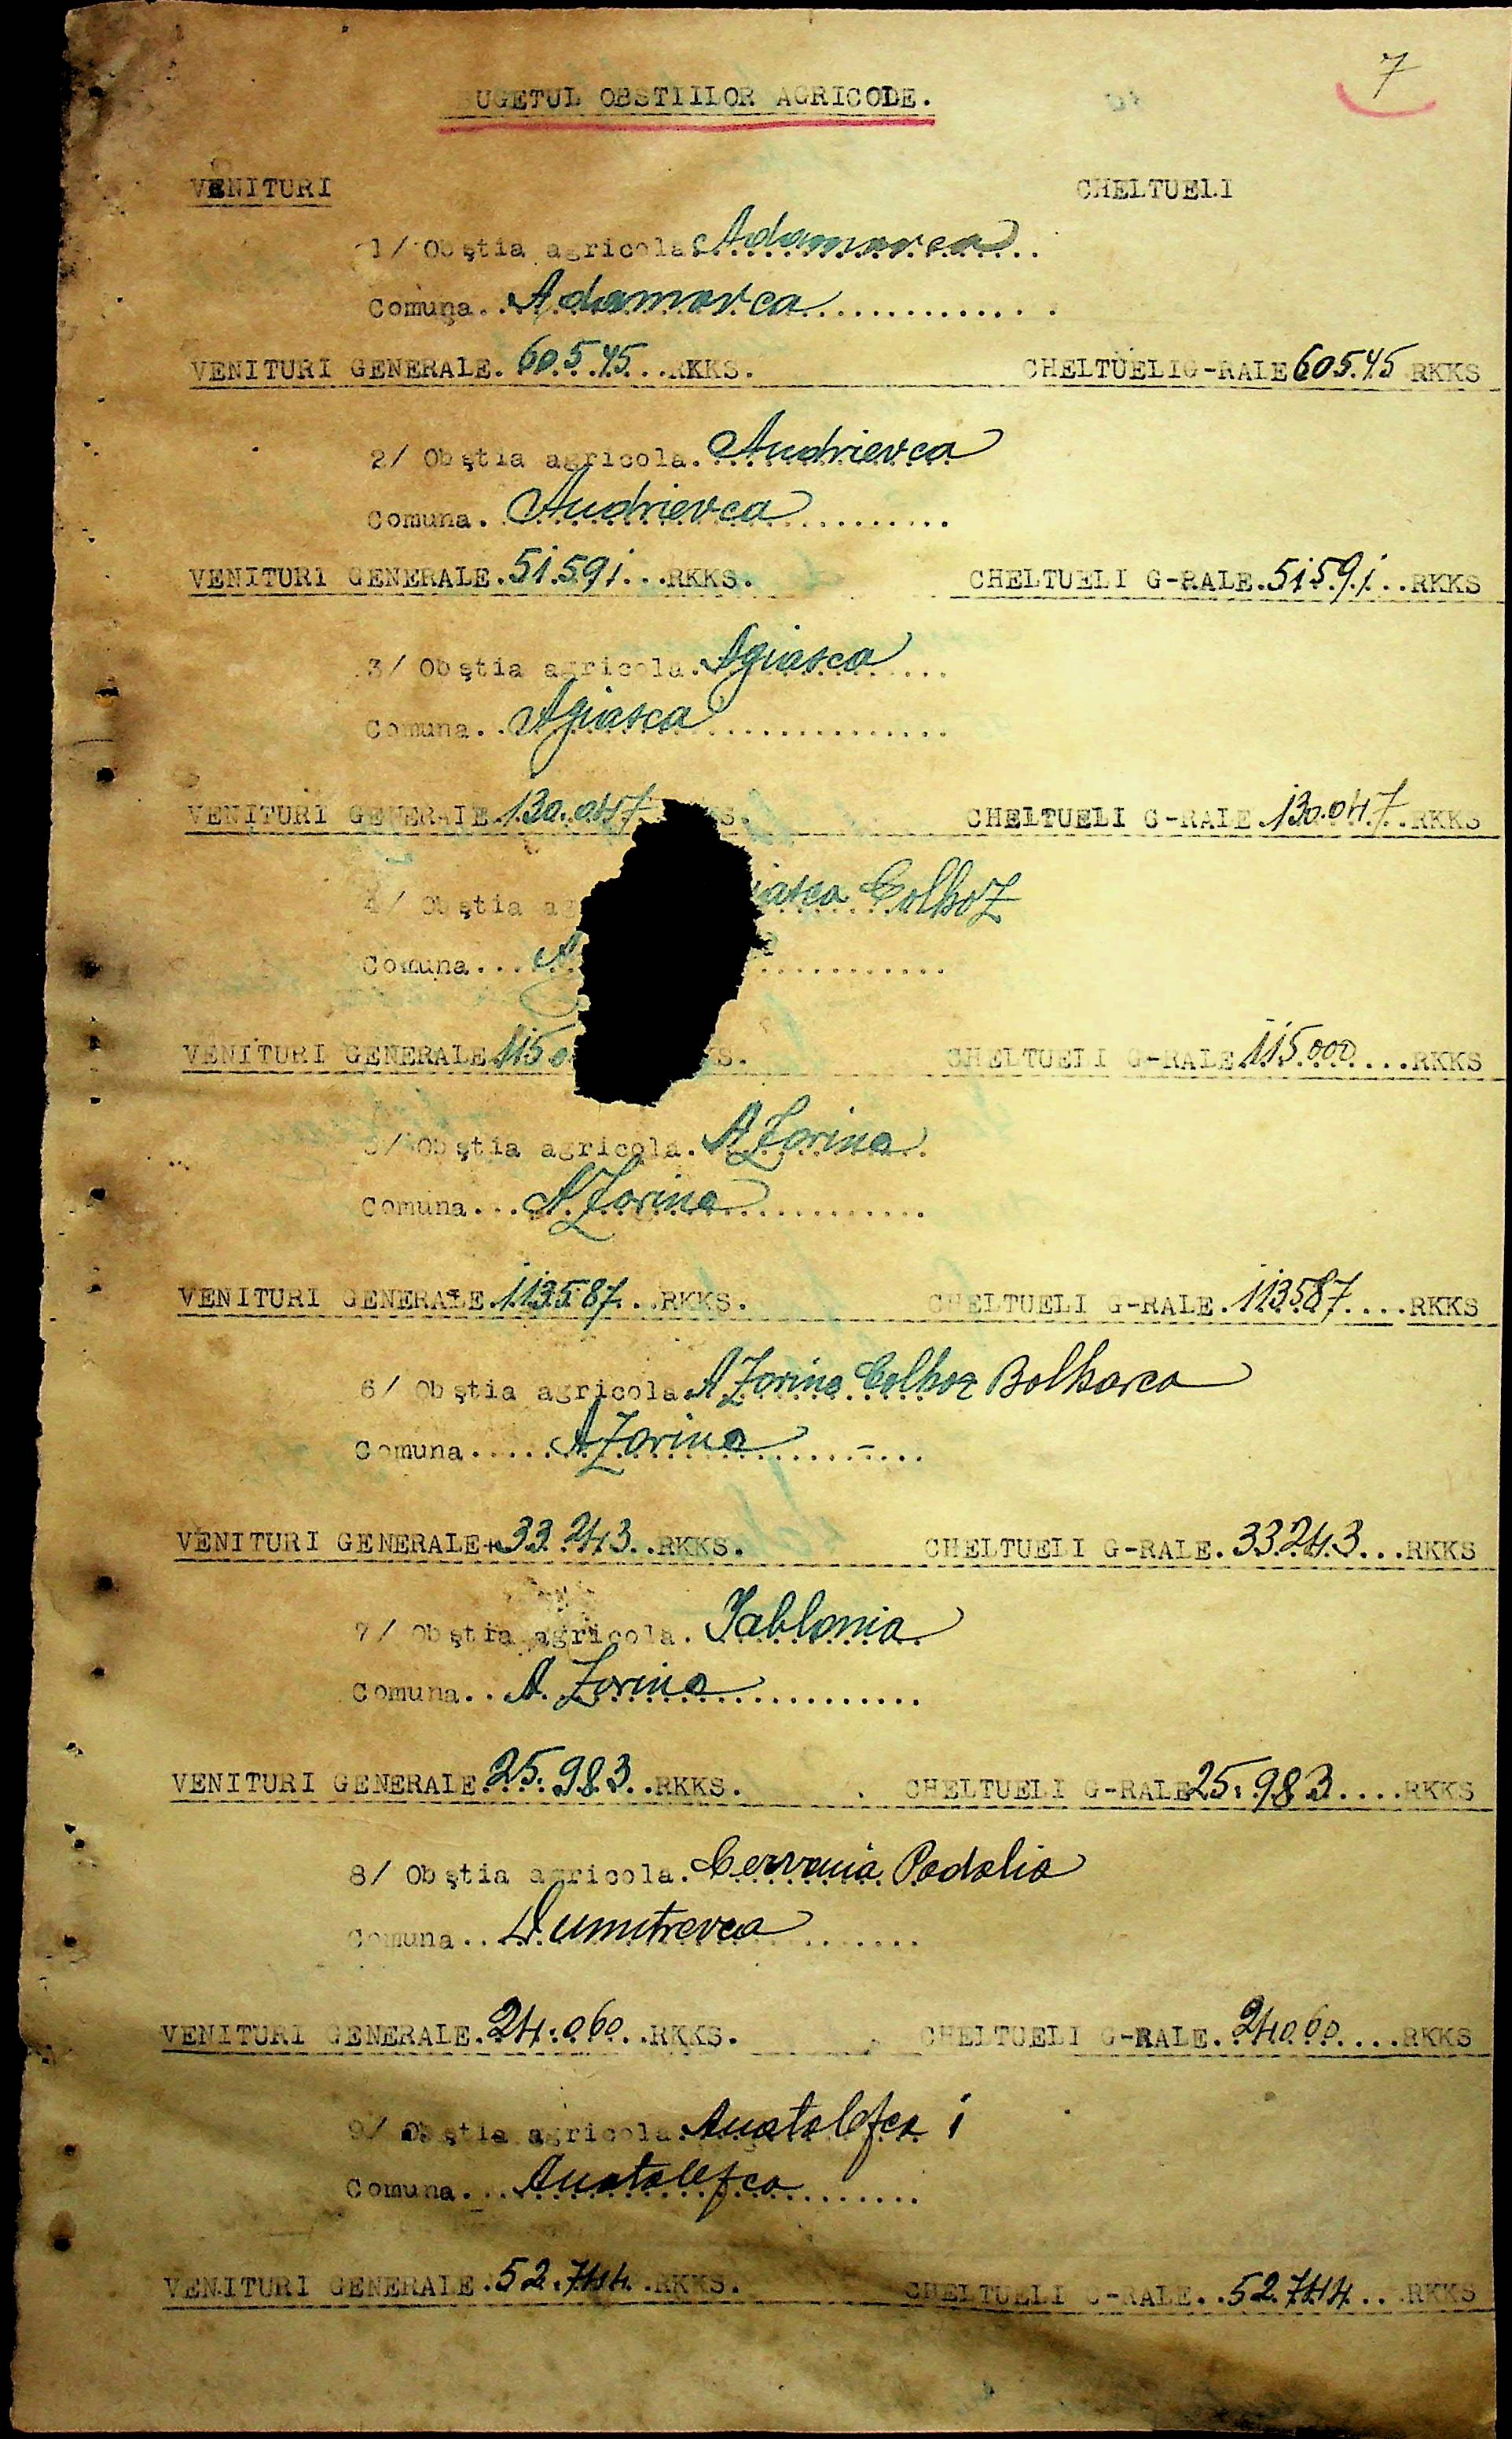 7
BUGETUL OBSTIILOR AGRICOLE.
VENITURI CHELTUELI
1/ Obştia agricola Adamovca
Comuna. Adamovca
VENITURI GENERALE. 60.545 RKKS. CHELTUELI G-RALE 60545 RKKS
2/ Obştia agricola. Andrievca
Comuna. Andrievca
VENITURI GENERALE. 51.591 RKKS. CHELTUELI G-RALE. 51591 RKKS
3/ Obştia agricola. Agiasca
Comuna. Agiasca
VENITURI GENERALE 130.047 CHELTUELI G-RALE 130.047 RKKS
4/ Obştia Colhoz
Comuna
VENITURI GENERALE CHELTUELI G-RALE 115.000 RKKS
5/ Obştia agricola. A Zorina
Comuna A Zorina
VENITURI GENERALE. 113587 RKKS. CHELTUELI G-RALE. 113587 RKKS
6/ Obştia agricola. A Zorina Colhoz Bolharca
Comuna A Zorina
VENITURI GENERALE 33.243 RKKS. CHELTUELI G-RALE. 33243 RKKS
7/ Obştia agricola. Iablonia
Comuna. A. Zorina
VENITURI GENERALE 25.983 RKKS. CHELTUELI G-RALE 25.983 RKKS
8/ Obştia agricola. Cervonia Podolia
Comuna Dumitrevca
VENITURI GENERALE. 24.060 RKKS. CHELTUELI G-RALE. 24060 RKKS
9/ Obştia agricola. Anatolefca 1
Comuna. Anatolefca
VENITURI GENERALE. 52.744 RKKS. CHELTUELI G-RALE. 52744 RKKS